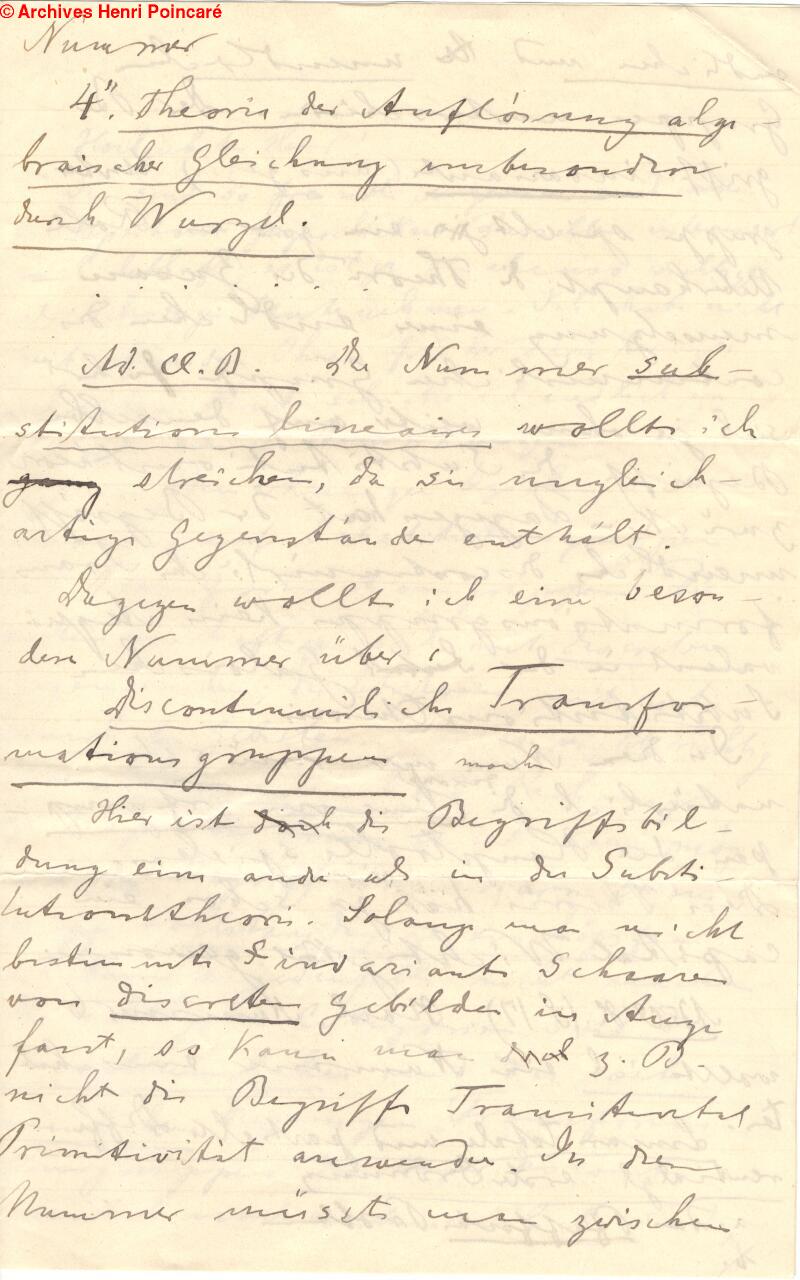 © Archives Henri Poincaré
Nummer
4". Theorie der Auflösung alge-
braischer Gleichung insbesondere
durch Wurzel.
. . . . . . .
Ad. A. B. Die Nummer sub-
stitutions lineaires wollte ich
ganz streichen, da sie ungleich-
artige Gegenstände enthält.
Dagegen wollte ich eine beson-
dere Nummer über:
Discontinuirliche Transfor-
mationsgruppen machen
Hier ist doch die Begriffsbil-
dung eine andre als in der Substi-
tutionstheorie. Solange man nicht
bestimmte invariante Schaaren
von discreten Gebilden ins Auge
fasst, so kann man z. B.
nicht die Begriffe Transitivität
Primitivität anwenden. In dieser
Nummer müsste man zwischen